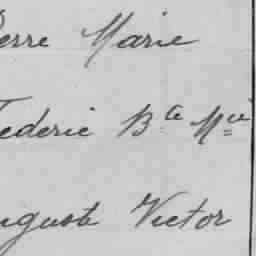 ierre Marie
rederic Bte Mie
uguste Victor